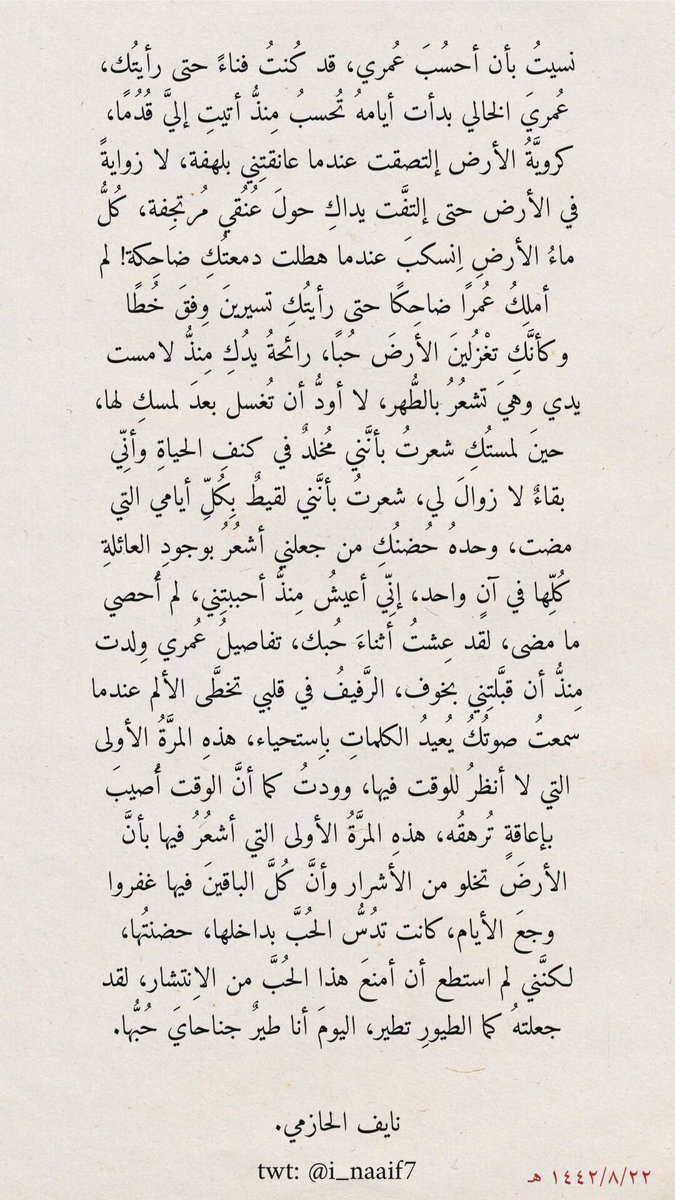 نسيتُ بأن أحسُبَ عُمري، قد كُنتُ فناءً حتى رأيتُك،
عُمريَ الخالي بدأت أيامهُ تُحسبُ مِنذُ أتيتِ إليَّ قُدُمًا،
كرويَّةُ الأرض إلتصقت عندما عانقتِني بلهفة، لا زوايةً
في الأرض حتى إلتفَّت يداكِ حولَ عُنُقي مُرتجِفة، كُلُّ
ماءُ الأرضِ اِنسكبَ عندما هطلت دمعتُكِ ضاحِكة! لم
أملِكُ عُمرًا ضاحِكًا حتى رأيتُكِ تسيرينَ وِفقَ خُطًا
وكأنَّكِ تغْزُلينَ الأرضَ حُبًا، رائحةُ يدُكِ مِنذُ لامست
يدي وهيَ تشعُرُ بالطُّهر، لا أودُّ أن تُغسل بعدَ لمسكِ لها،
حينَ لمستُكِ شعرتُ بأنَّني مُخلدٌ في كنفِ الحياةِ وأنِّي
بقاءٌ لا زوالَ لي، شعرتُ بأنَّني لقيطٌ بِكُلِّ أيامي التي
مضت، وحدهُ حُضنُكِ من جعلني أشعُرُ بوجودِ العائلةِ
كُلِّها في آنٍ واحد، إنِّي أعيشُ مِنذُ أحببتِني، لم أُحصي
ما مضى، لقد عِشتُ أثناءَ حُبك، تفاصيلُ عُمري وِلدت
مِنذُ أن قبَّلتِني بخوف، الرَّفيفُ في قلبي تخطَّى الألم عندما
سمعتُ صوتُكُ يُعيدُ الكلماتِ بإستحياء، هذهِ المرَّةُ الأولى
التي لا أنظرُ للوقت فيها، وودتُ كما أنَّ الوقت أُصيبَ
بإعاقةٍ تُرهقُه، هذهِ المرَّةُ الأولى التي أشعُرُ فيها بأنَّ
الأرضَ تخلو من الأشرار وأنَّ كُلَّ الباقينَ فيها غفروا
وجعَ الأيام،كانت تدُسُّ الحُبَّ بداخلها، حضنتُها،
لكنَّني لم استطع أن أمنعَ هذا الحُبَّ من الاِنتشار، لقد
جعلتهُ كما الطيورِ تطير، اليومَ أنا طيرٌ جناحايَ حُبُّها.
نايف الحازمي.
twt: @i_naaif7
١٤٤٢/٨/٢٢ هـ